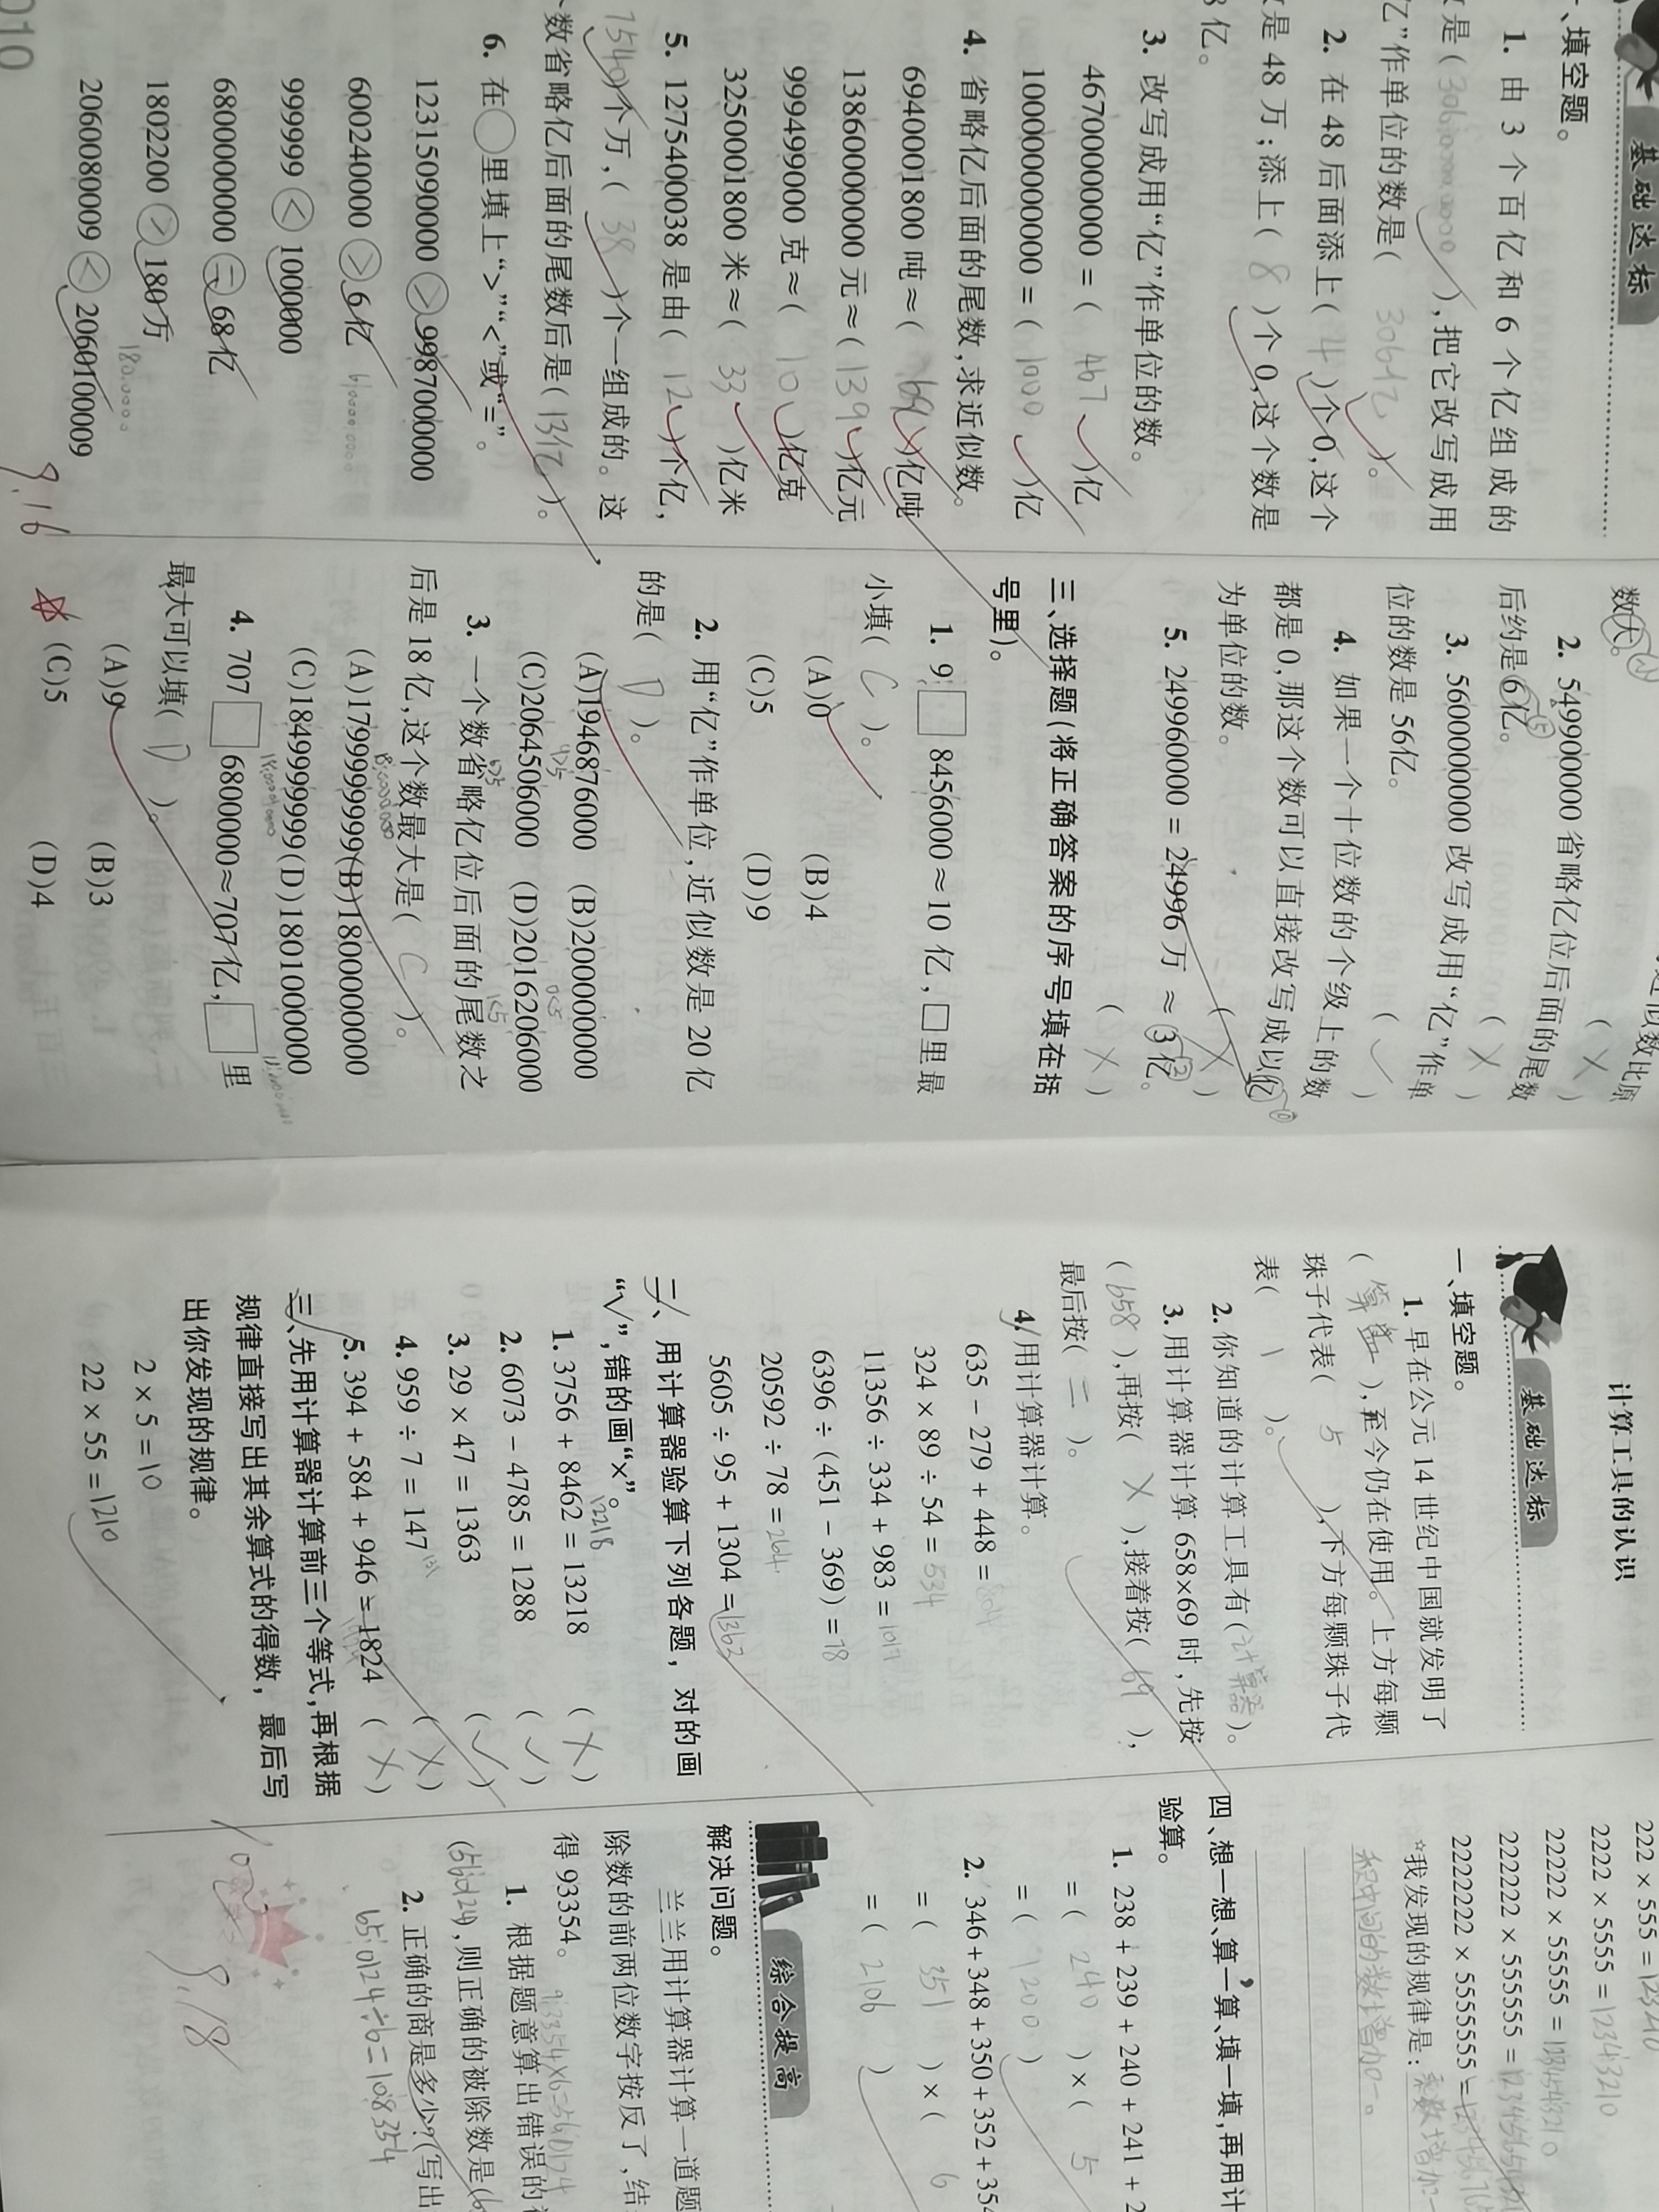 基础达标
一、填空题。
1. 由 3 个百亿和 6 个亿组成的
是( 30600000000 ),把它改写成用
亿”作单位的数是( 306亿 )。
2. 在 48 后面添上( 4 )个 0,这个
是 48 万;添上( 8 )个 0,这个数是
亿。
3. 改写成用“亿”作单位的数。
46700000000 = ( 467 )亿
100000000000 = ( 1000 )亿
4. 省略亿后面的尾数,求近似数。
6940001800 吨≈( 69 )亿吨
13860000000 元≈( 139 )亿元
999499000 克≈( 10 )亿克
3250001800 米≈( 33 )亿米
5. 1275400038 是由( 12 )个亿,
7540)个万,( 38 )个一组成的。这
数省略亿后面的尾数后是( 13亿 )。
6. 在○里填上“>”“<”或“=”。
1231509000 > 998700000
600240000 > 6亿
999999 < 1000000
6800000000 = 68亿
1802200 > 180万
2060080009 < 2060100009
9.16
数大。
2. 549900000 省略亿位后面的尾数
后约是 6亿。 ( × )
3. 5600000000 改写成用“亿”作单
位的数是 56亿。 ( ✓ )
4. 如果一个十位数的个级上的数
都是 0,那这个数可以直接改写成以亿
为单位的数。 ( × )
5. 249960000 = 24996 万 ≈ 3 亿。
( × )
三、选择题(将正确答案的序号填在括
号里)。
1. 9□8456000≈10 亿,□里最
小填( C )。
(A)0 (B)4
(C)5 (D)9
2. 用“亿”作单位,近似数是 20 亿
的是( D )。
(A)1946876000 (B)200000000
(C)2064506000 (D)2016206000
3. 一个数省略亿位后面的尾数之
后是 18 亿,这个数最大是( C )。
(A)1799999999 (B)1800000000
(C)1849999999 (D)1801000000
4. 707□6800000≈707亿,□里
最大可以填( D )。
(A)9 (B)3
(C)5 (D)4
计算工具的认识
基础达标
一、填空题。
1. 早在公元 14 世纪中国就发明了
( 算盘 ),至今仍在使用。上方每颗
珠子代表( 5 ),下方每颗珠子代
表( 1 )。
2. 你知道的计算工具有(计算器)。
3. 用计算器计算 658×69 时,先按
( 658 ),再按( × ),接着按( 69 ),
最后按( = )。
4. 用计算器计算。
635 − 279 + 448 = 804
324 × 89 ÷ 54 = 534
11356 ÷ 334 + 983 = 1017
6396 ÷ (451 − 369) = 78
20592 ÷ 78 = 264
5605 ÷ 95 + 1304 = 1363
二、用计算器验算下列各题,对的画
“√”,错的画“×”。
12218
1. 3756 + 8462 = 13218 ( × )
2. 6073 − 4785 = 1288 ( ✓ )
3. 29 × 47 = 1363 ( ✓ )
4. 959 ÷ 7 = 147 ( × )
5. 394 + 584 + 946 = 1824 ( × )
三、先用计算器计算前三个等式,再根据
规律直接写出其余算式的得数,最后写
出你发现的规律。
2 × 5 = 10
22 × 55 = 1210
222 × 555 = 123210
2222 × 5555 = 12343210
22222 × 55555 =
222222 × 555555 =
2222222 × 5555555 =
☆我发现的规律是:乘数增加一
积中间的数增加一。
四、想一想、算一算、填一填,再用计
验算。
1. 238 + 239 + 240 + 241 + 2
= ( 240 ) × ( 5
= ( 1200 )
2. 346 + 348 + 350 + 352 + 354
= ( 351 ) × ( 6
= ( 2106 )
综合提高
解决问题。
兰兰用计算器计算一道题
除数的前两位数字按反了,结
得 93354。
93354×6=560124
1. 根据题意算出错误的
(560124),则正确的被除数是(6
2. 正确的商是多少?(写出
650124÷6=108354
9.18